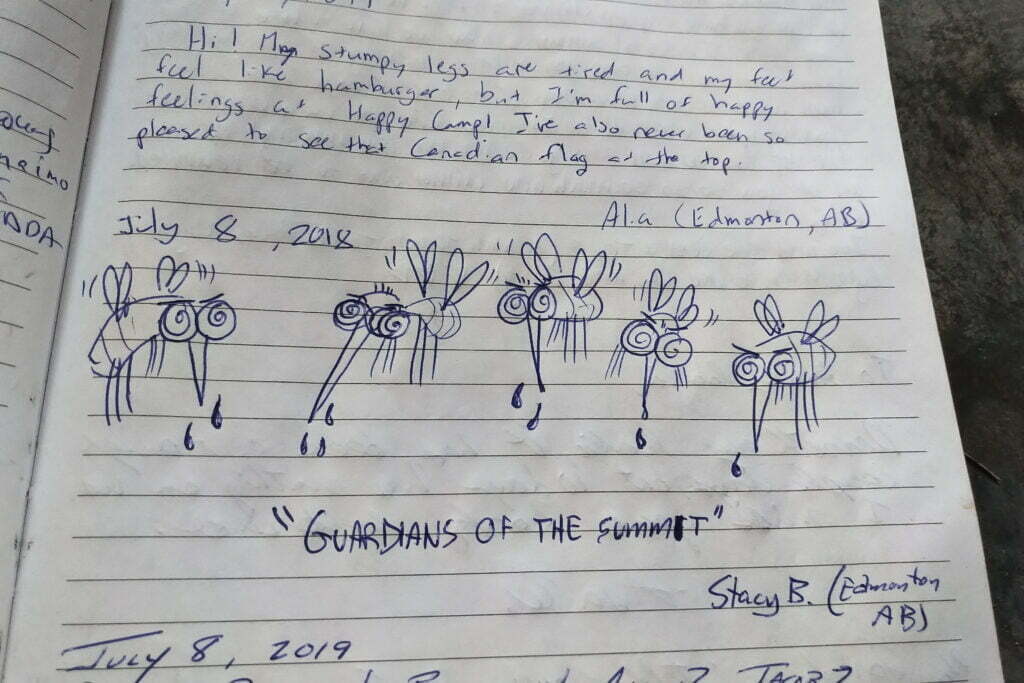 Hi! My stumpy legs are tired and my feet
feel like hamburger, but I'm full of happy
feelings at Happy Camp! I've also never been so
pleased to see that Canadian flag at the top.
Alia (Edmonton, AB)
July 8, 2018
"GUARDIANS OF THE SUMMIT"
Stacy B. (Edmonton
AB)
JULY 8, 2019
neimo
ADA